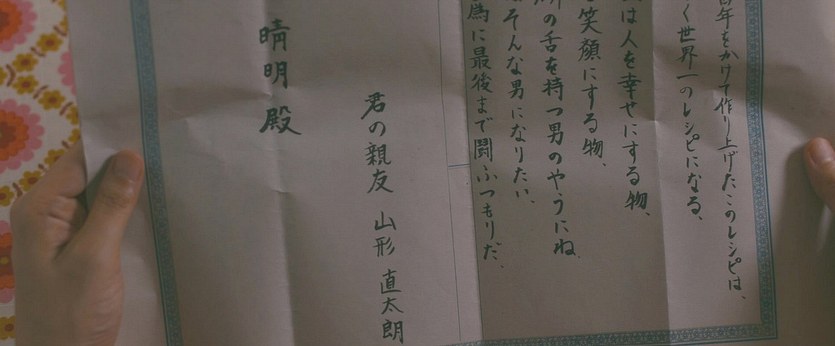 年をかけて作り上げたこのレシピは、
く世界一のレシピになる、
は人を幸せにする物、
笑顔にする物、
の舌を持つ男のやうにね
そんな男になりたい、
為に最後まで闘ふつもりだ、
君の親友 山形 直太朗
晴明 殿